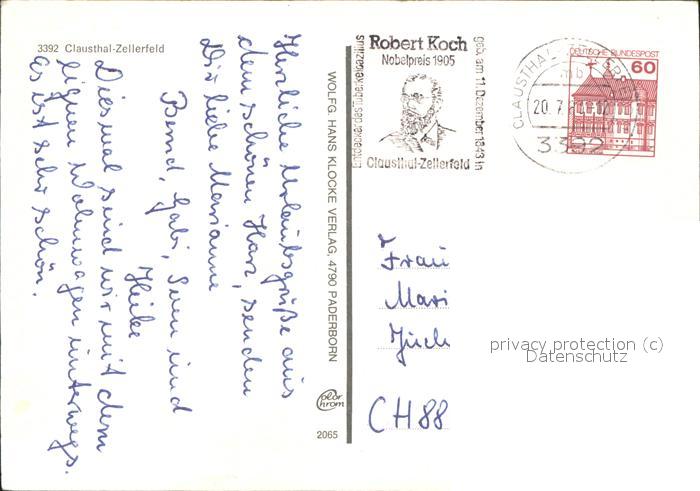 3392 Clausthal-Zellerfeld
Herzliche Urlaubsgrüße aus
dem schönen Harz, senden
Dir liebe Marianne
Bernd, Gabi, Sven und
Heike
Diesmal sind wir mit dem
eignen Wohnwagen unterwegs.
Es ist sehr schön.
WOLFG. HANS KLOCKE VERLAG, 4790 PADERBORN
Color
chrom
2065
Robert Koch
Nobelpreis 1905
geb. am 11. Dezember 1843 in
Clausthal-Zellerfeld
Entdecker des Tuberkelbazillus
CLAUSTHAL-ZELLERFELD
mb
20.7.
12
3392
DEUTSCHE BUNDESPOST
60
Frau
Mari
CH 88
privacy protection (c)
Datenschutz